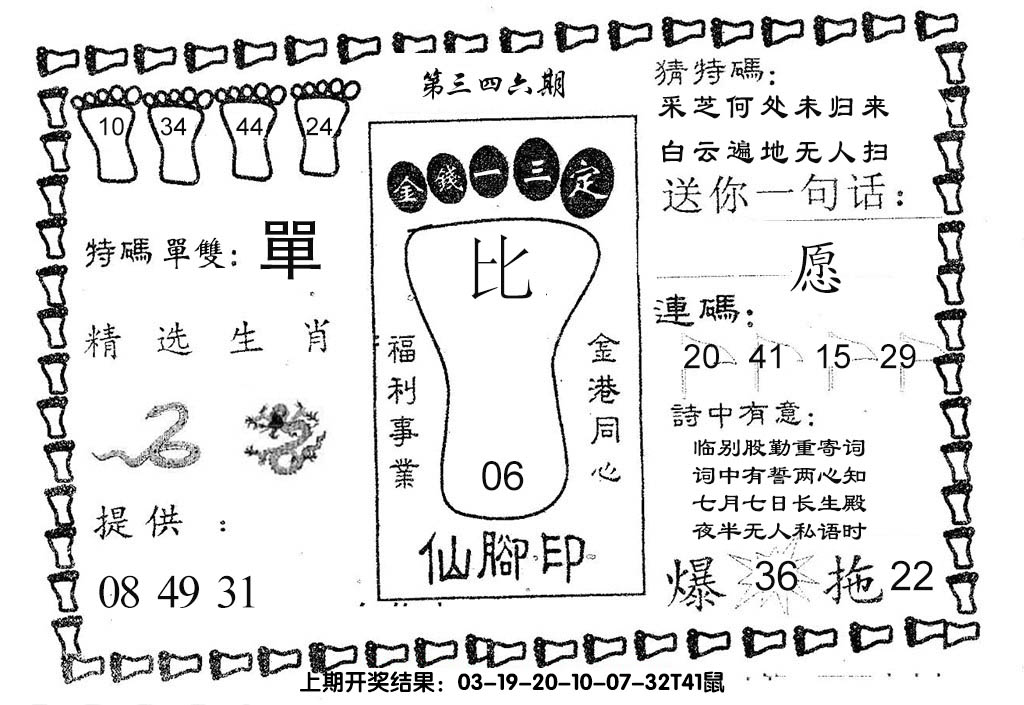 第三四六期
10 34 44 24
特碼單雙: 單
精选生肖
提供:
08 49 31
金錢一三定
比
福利事業
金港同心
06
仙腳印
猜特碼:
采芝何处未归来
白云遍地无人扫
送你一句话:
愿
連碼:
20 41 15 29
詩中有意:
临别殷勤重寄词
词中有誓两心知
七月七日长生殿
夜半无人私语时
爆 36 拖 22
上期开奖结果: 03-19-20-10-07-32T41鼠